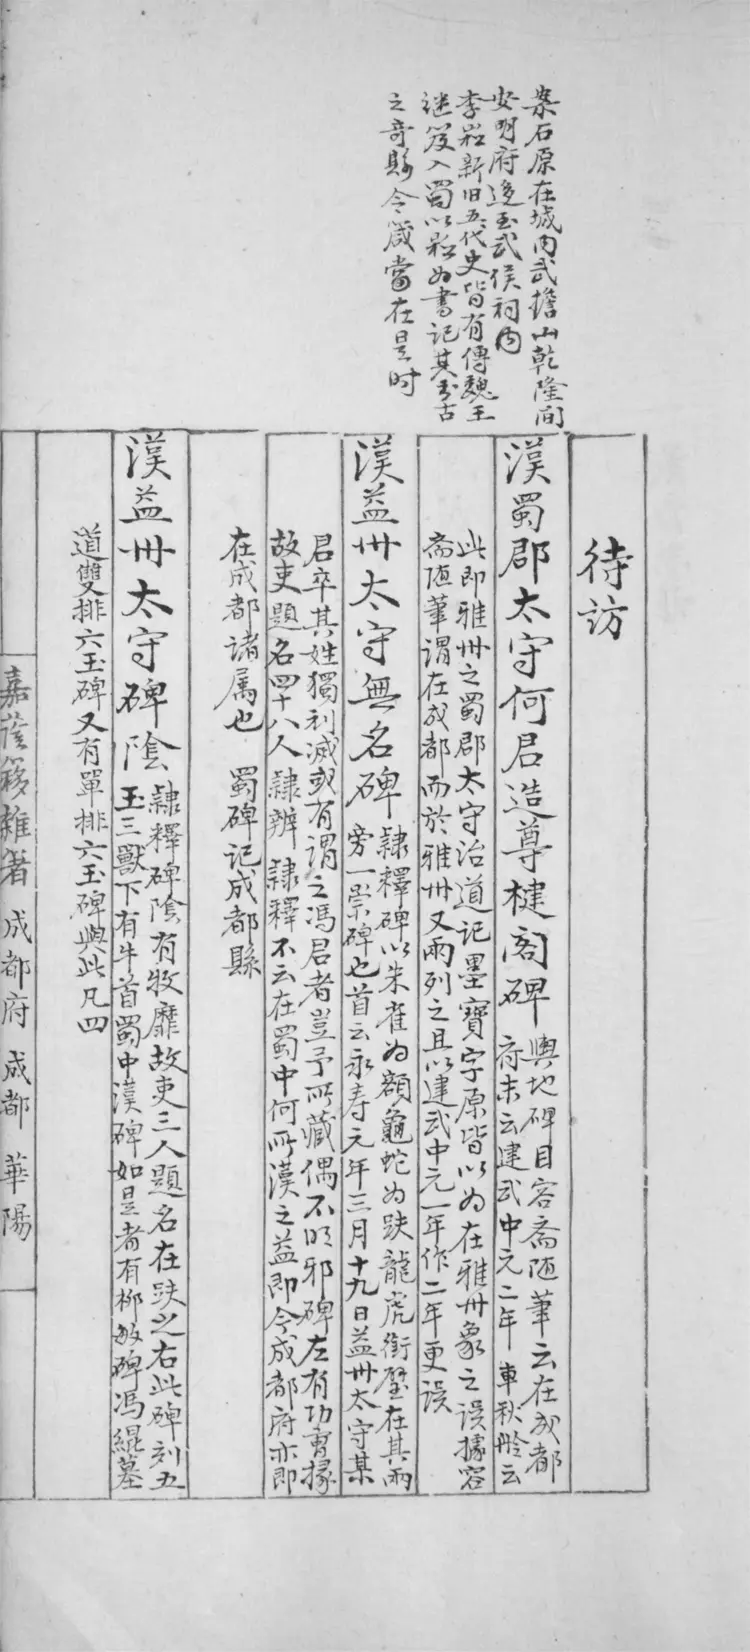 案石原在城内武擔山乾隆間
安明府遷至武侯祠内
李崧新旧五代史皆有傳魏王
継岌入蜀以崧為書記其書古
之奇縣令箴當在是时
待訪
漢蜀郡太守何君造尊楗閣碑 輿地碑目容斋随筆云在成都
府末云建武中元二年 車秋舲云
此即雅州之蜀郡太守治道记墨寶字原皆以为在雅州象之误據容
斋随筆谓在成都而於雅州又兩列之且以建武中元一年作二年更误
漢益州太守無名碑 隸釋碑以朱雀为額龜蛇为趺龍虎銜璧在其兩
旁一崇碑也首云永寿元年三月十九日益州太守某
君卒其姓獨刓滅或有谓之馮君者豈予所藏偶不明邪碑左有功曹掾
故吏題名四十八人 隸辨 隸释不云在蜀中何所漢之益即今成都府亦即
在成都诸属也 蜀碑记成都縣
漢益州太守碑陰 隸釋碑陰有牧靡故吏三人題名在趺之右此碑刻五
玉三獸下有牛首蜀中漢碑如是者有柳敏碑馮緄墓
道雙排六玉碑又有單排六玉碑與此凡四
嘉蔭簃雜著 成都府 成都 華陽